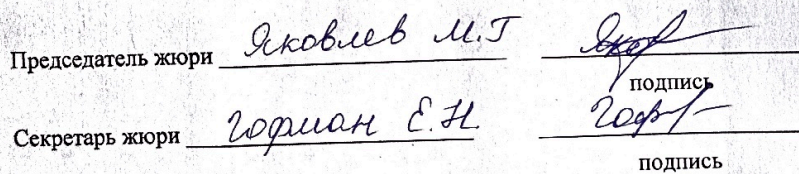 Председатель жюри Яковлев М.Г Яков
подпись
Секретарь жюри Гофман Е.Н. Гоф
подпись